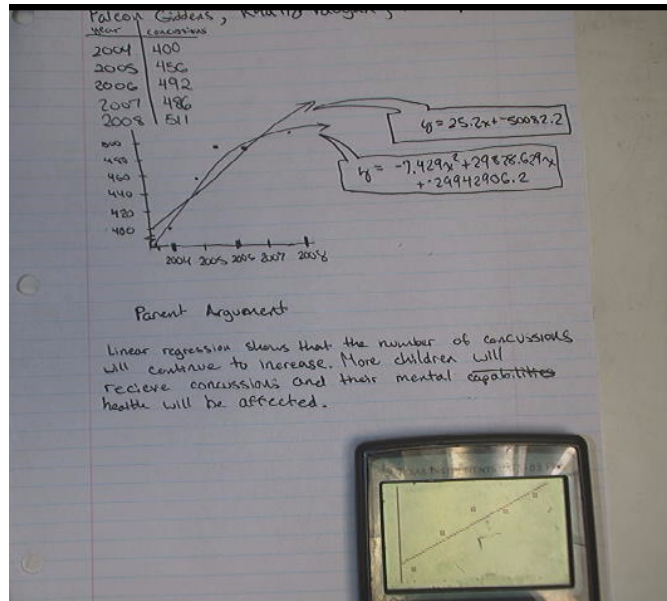 Falcon Giddens,
year concussions
2004 400
2005 456
2006 492
2007 486
2008 511
500
480
460
440
420
400
2004 2005 2006 2007 2008
y = 25.2x+-50082.2
y = -7.429x²+29828.629x
+-29942906.2
Parent Argument
Linear regression shows that the number of concussions
will continue to increase. More children will
recieve concussions and their mental capabilities
health will be affected.
TEXAS INSTRUMENTS